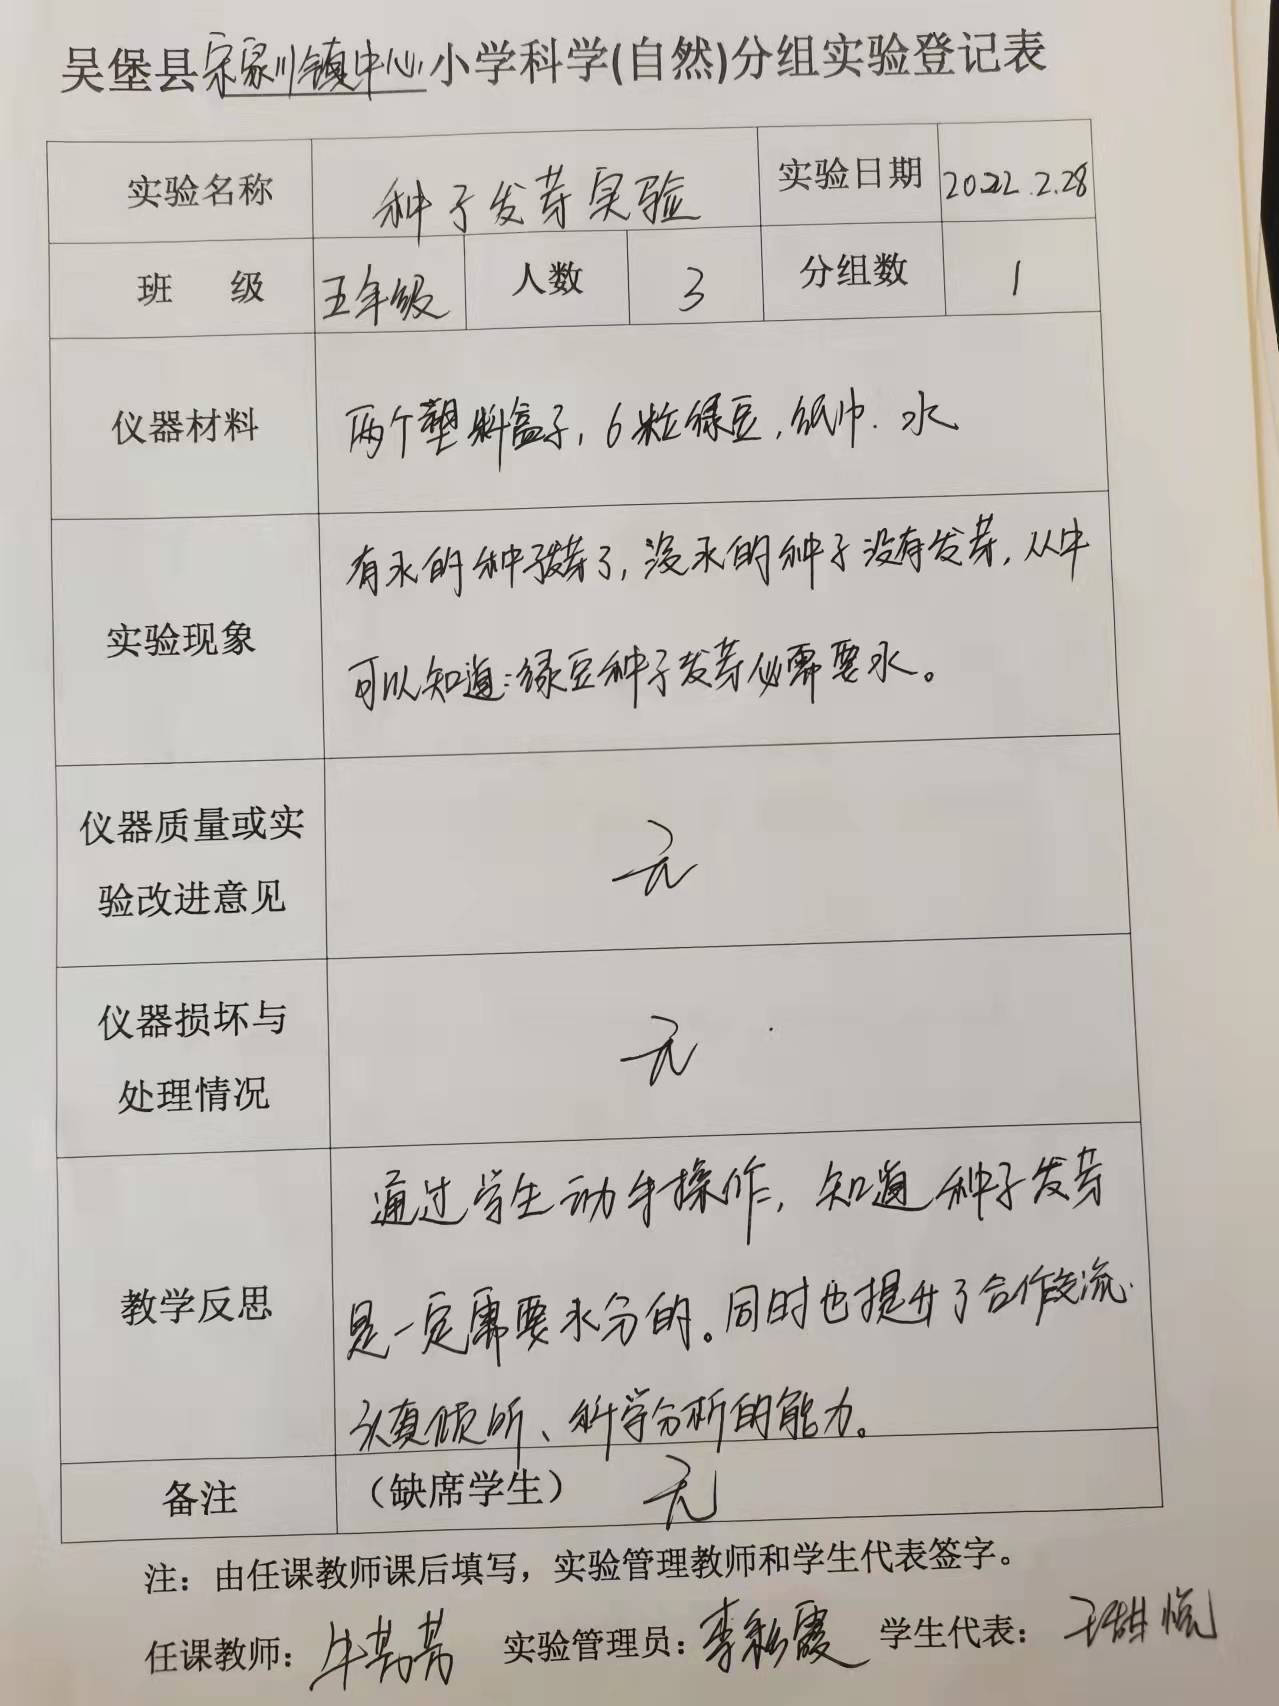 吴堡县宋家川镇中心小学科学(自然)分组实验登记表
实验名称 种子发芽实验 实验日期 2022.2.28
班 级 五年级 人数 3 分组数 1
仪器材料 两个塑料盒子，6粒绿豆，纸巾．水
实验现象
有水的种子发芽了，没水的种子没有发芽，从中
可以知道：绿豆种子发芽必需要水。
仪器质量或实
验改进意见
无
仪器损坏与
处理情况
无
教学反思
通过学生动手操作，知道种子发芽
是一定需要水分的。同时也提升了合作交流．
认真倾听、科学分析的能力。
备注 （缺席学生） 无
注：由任课教师课后填写，实验管理教师和学生代表签字。
任课教师：牛芳芳 实验管理员：李彩霞 学生代表：